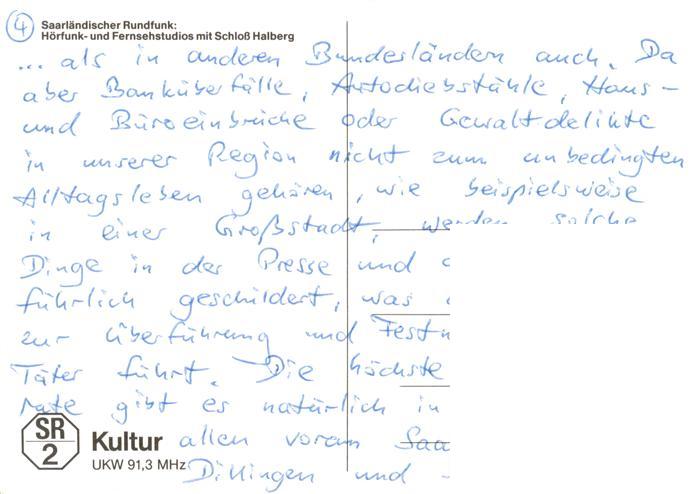 4
Saarländischer Rundfunk:
Hörfunk- und Fernsehstudios mit Schloß Halberg
... als in anderen Bundesländern auch. Da
aber Banküberfälle, Autodiebstähle, Haus-
und Büroeinbrüche oder Gewaltdelikte
in unserer Region nicht zum unbedingten
Alltagsleben gehören, wie beispielsweise
in einer Großstadt, werden solche
Dinge in der Presse und
führlich geschildert, was
zur Überführung und Festn
Täter führt. Die höchste
rate gibt es natürlich in
SR
2
Kultur
UKW 91,3 MHz
allen voran Saa
Dillingen und